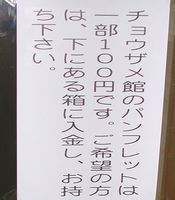 チョウザメ館のパンフレットは
一部100円です。ご希望の方
は、下にある箱に入金し、お持
ち下さい。